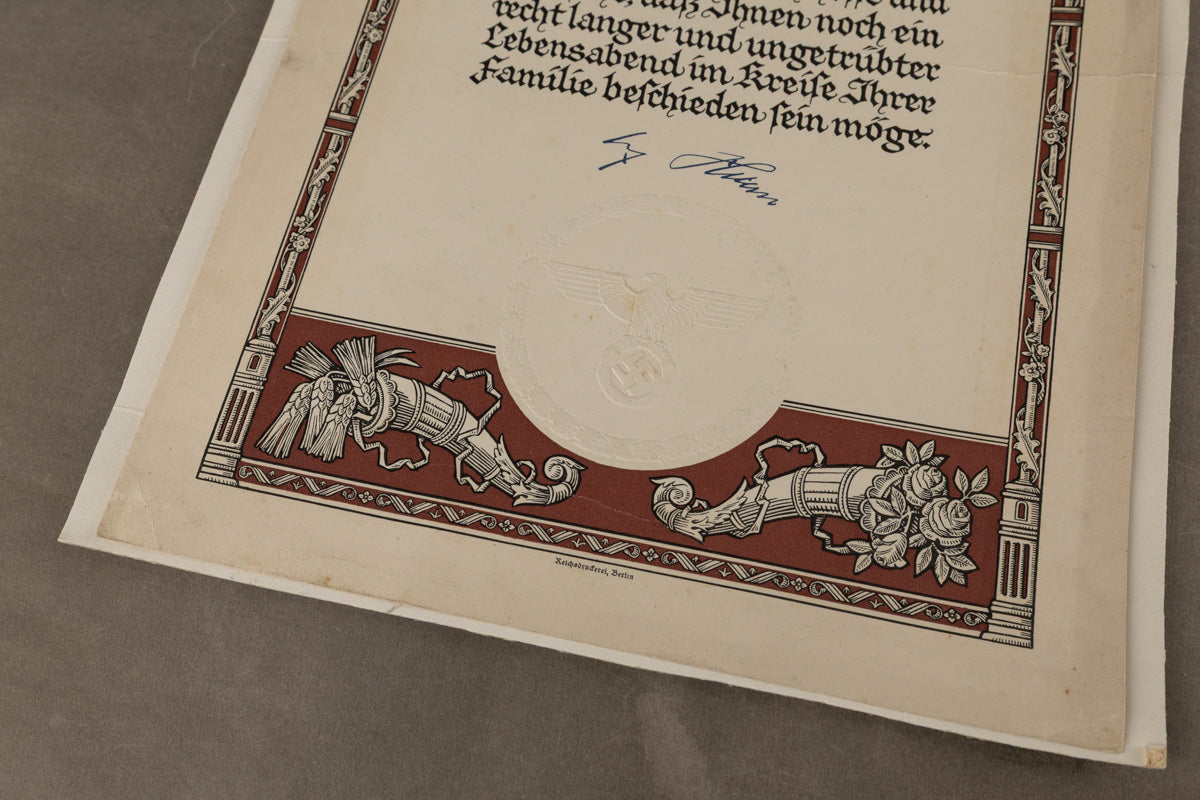 daß Ihnen noch ein
recht langer und ungetrübter
Lebensabend im Kreise Ihrer
Familie beschieden sein möge.
Reichsdruckerei, Berlin